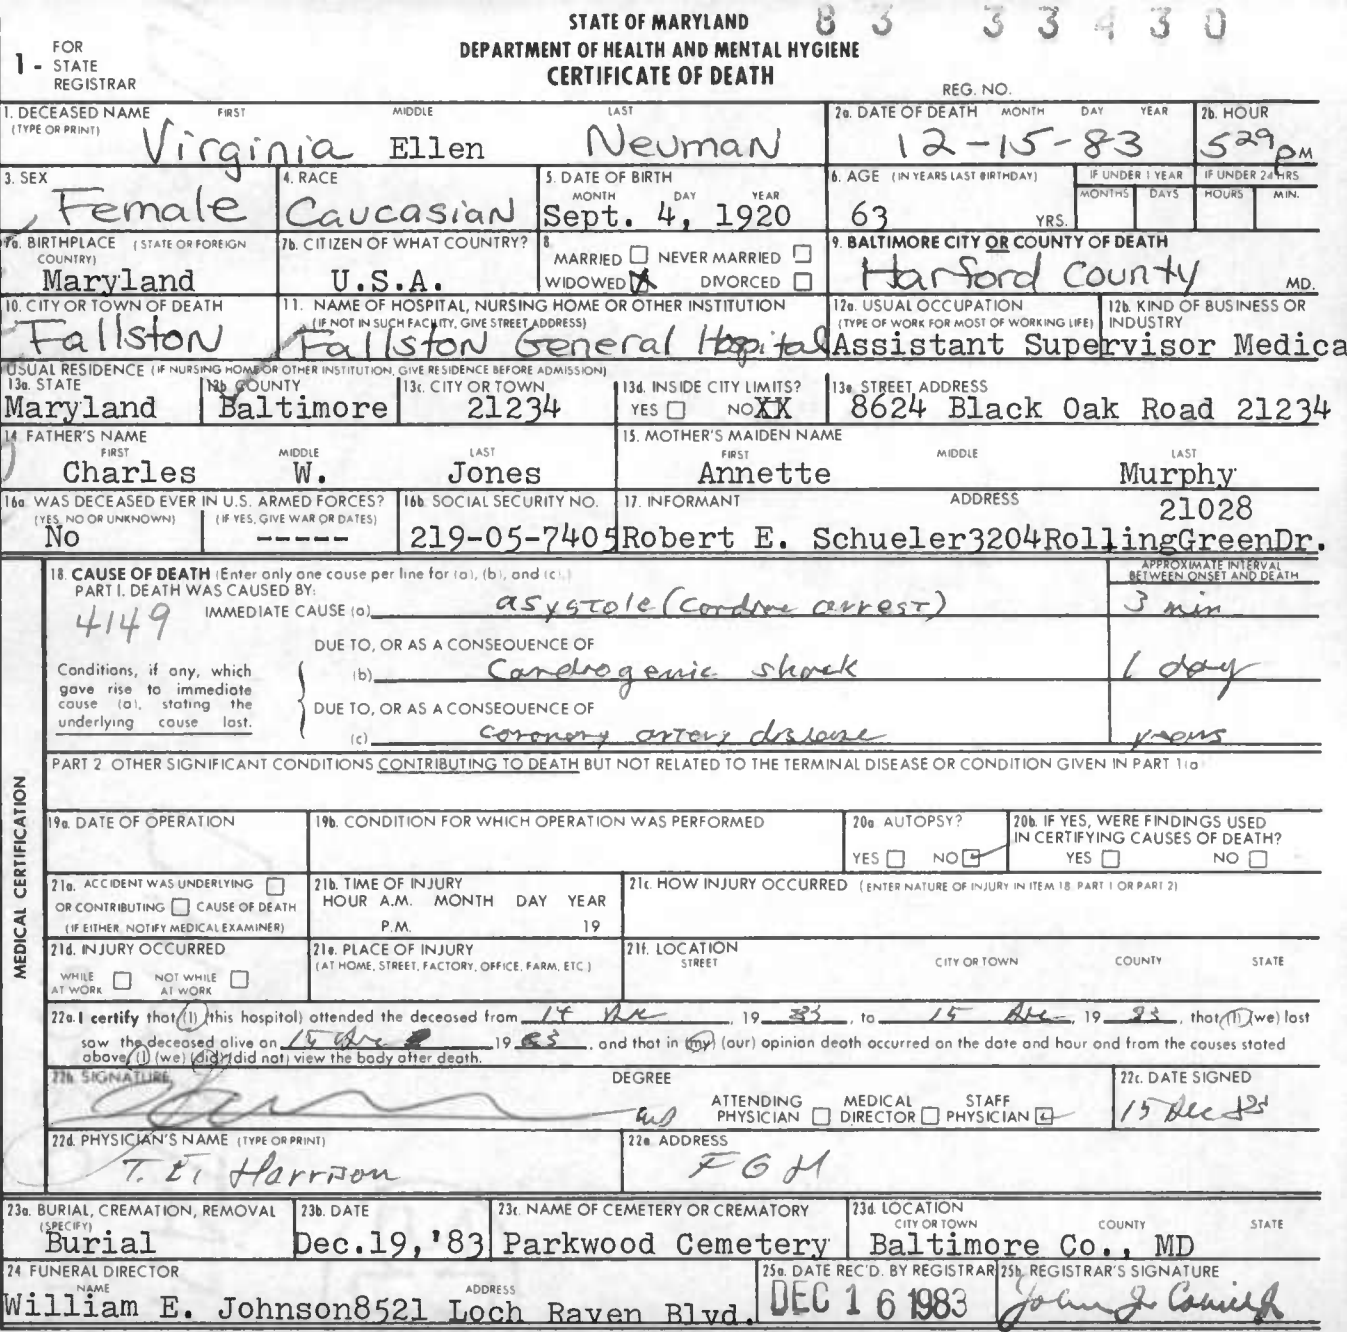 STATE OF MARYLAND
83 33430
DEPARTMENT OF HEALTH AND MENTAL HYGIENE
CERTIFICATE OF DEATH
1 - FOR STATE REGISTRAR
REG. NO.
1. DECEASED NAME (TYPE OR PRINT) FIRST MIDDLE LAST
Virginia Ellen Neuman
2a. DATE OF DEATH MONTH DAY YEAR
12-15-83
2b. HOUR
5 29 PM
3. SEX
Female
4. RACE
Caucasian
5. DATE OF BIRTH MONTH DAY YEAR
Sept. 4, 1920
6. AGE (IN YEARS LAST BIRTHDAY)
63 YRS.
IF UNDER 1 YEAR MONTHS DAYS
IF UNDER 24 HRS HOURS MIN.
7a. BIRTHPLACE (STATE OR FOREIGN COUNTRY)
Maryland
7b. CITIZEN OF WHAT COUNTRY?
U.S.A.
8. MARRIED NEVER MARRIED
WIDOWED X DIVORCED
9. BALTIMORE CITY OR COUNTY OF DEATH
Harford County MD.
10. CITY OR TOWN OF DEATH
Fallston
11. NAME OF HOSPITAL, NURSING HOME OR OTHER INSTITUTION
(IF NOT IN SUCH FACILITY, GIVE STREET ADDRESS)
Fallston General Hospital
12a. USUAL OCCUPATION
(TYPE OF WORK FOR MOST OF WORKING LIFE)
12b. KIND OF BUSINESS OR INDUSTRY
Assistant Supervisor Medica
USUAL RESIDENCE (IF NURSING HOME OR OTHER INSTITUTION, GIVE RESIDENCE BEFORE ADMISSION)
13a. STATE
Maryland
13b. COUNTY
Baltimore
13c. CITY OR TOWN
21234
13d. INSIDE CITY LIMITS?
YES NO XX
13e. STREET ADDRESS
8624 Black Oak Road 21234
14. FATHER'S NAME
FIRST MIDDLE LAST
Charles W. Jones
15. MOTHER'S MAIDEN NAME
FIRST MIDDLE LAST
Annette Murphy
16a. WAS DECEASED EVER IN U.S. ARMED FORCES?
(YES, NO OR UNKNOWN) (IF YES, GIVE WAR OR DATES)
No -----
16b. SOCIAL SECURITY NO.
219-05-7405
17. INFORMANT ADDRESS
21028
Robert E. Schueler3204RollingGreenDr.
18. CAUSE OF DEATH (Enter only one cause per line for (a), (b), and (c).)
APPROXIMATE INTERVAL BETWEEN ONSET AND DEATH
PART I. DEATH WAS CAUSED BY:
4149
IMMEDIATE CAUSE (a) asystole (Cardiac arrest) 3 min
DUE TO, OR AS A CONSEQUENCE OF
Conditions, if any, which gave rise to immediate cause (a), stating the underlying cause last.
(b) Cardiogenic shock 1 day
DUE TO, OR AS A CONSEQUENCE OF
(c) coronary artery disease years
PART 2 OTHER SIGNIFICANT CONDITIONS CONTRIBUTING TO DEATH BUT NOT RELATED TO THE TERMINAL DISEASE OR CONDITION GIVEN IN PART 1(a)
MEDICAL CERTIFICATION
19a. DATE OF OPERATION
19b. CONDITION FOR WHICH OPERATION WAS PERFORMED
20a AUTOPSY?
YES NO
20b. IF YES, WERE FINDINGS USED IN CERTIFYING CAUSES OF DEATH?
YES NO
21a. ACCIDENT WAS UNDERLYING
OR CONTRIBUTING CAUSE OF DEATH
(IF EITHER, NOTIFY MEDICAL EXAMINER)
21b. TIME OF INJURY
HOUR A.M. MONTH DAY YEAR
P.M. 19
21c. HOW INJURY OCCURRED (ENTER NATURE OF INJURY IN ITEM 18, PART 1 OR PART 2)
21d. INJURY OCCURRED
WHILE AT WORK NOT WHILE AT WORK
21e. PLACE OF INJURY
(AT HOME, STREET, FACTORY, OFFICE, FARM, ETC.)
21f. LOCATION
STREET CITY OR TOWN COUNTY STATE
22a. I certify that (I) (this hospital) attended the deceased from 14 Dec, 19 83, to 15 Dec 19 83, that (I) (we) last
saw the deceased alive on 15 Dec 19 83, and that in (my) (our) opinion death occurred on the date and hour and from the causes stated
above, (I) (we) (did) (did not) view the body after death.
22b. SIGNATURE DEGREE
MD
ATTENDING PHYSICIAN MEDICAL DIRECTOR STAFF PHYSICIAN
22c. DATE SIGNED
15 Dec 83
22d. PHYSICIAN'S NAME (TYPE OR PRINT)
T. E. Harrison
22e ADDRESS
FGH
23a. BURIAL, CREMATION, REMOVAL (SPECIFY)
Burial
23b. DATE
Dec.19,'83
23c. NAME OF CEMETERY OR CREMATORY
Parkwood Cemetery
23d. LOCATION
CITY OR TOWN COUNTY STATE
Baltimore Co., MD
24 FUNERAL DIRECTOR
NAME ADDRESS
William E. Johnson8521 Loch Raven Blvd.
25a. DATE REC'D. BY REGISTRAR
DEC 16 1983
25b. REGISTRAR'S SIGNATURE
John J.